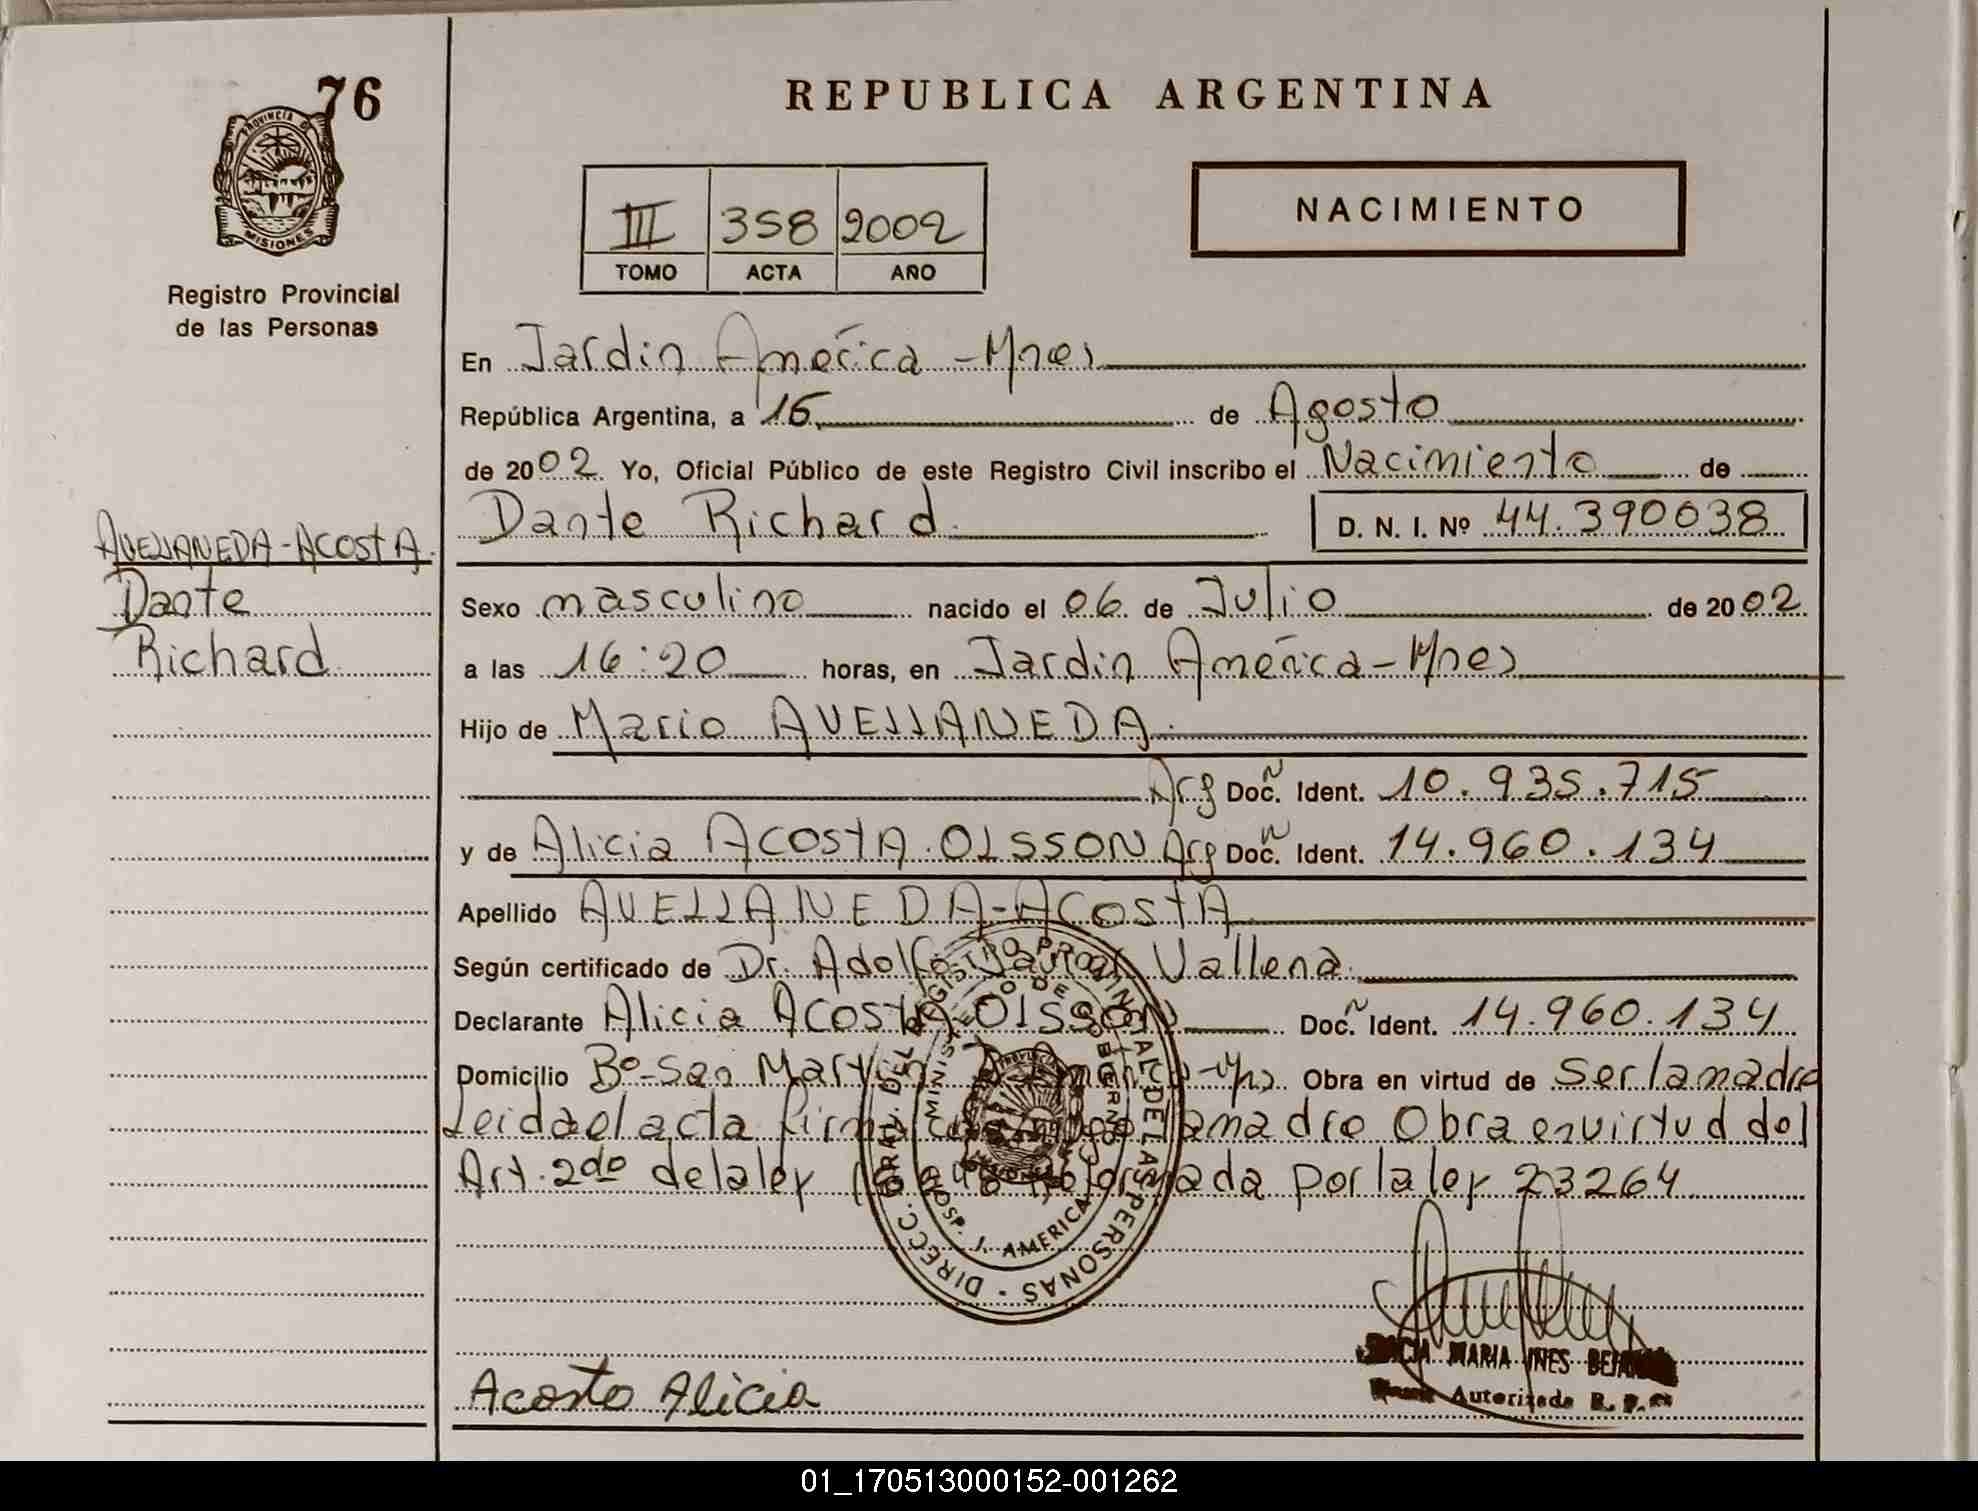 76
REPUBLICA ARGENTINA
PROVINCIA DE MISIONES
Registro Provincial
de las Personas
III 358 2002
TOMO ACTA AÑO
NACIMIENTO
En Jardin América - Mnes
República Argentina, a 16 de Agosto
de 2002 Yo, Oficial Público de este Registro Civil inscribo el Nacimiento de
Dante Richard D. N. I. Nº 44.390038
AVELLANEDA-ACOSTA
Dante
Richard
Sexo masculino nacido el 06 de Julio de 2002
a las 16:20 horas, en Jardin América - Mnes
Hijo de Mario AVELLANEDA
Arg Doc. Ident. 10.935.715
y de Alicia ACOSTA OLSSON Arg Doc. Ident. 14.960.134
Apellido AVELLANEDA-ACOSTA
Según certificado de Dr. Adolfo Vallena
Declarante Alicia ACOSTA OLSSON Doc. Ident. 14.960.134
Domicilio Bº San Martin Obra en virtud de Ser la madre
Leida el acta firma la madre Obra en virtud del
Art. 2do de la ley por la ley 23264
DIRECC. GRAL. DEL REGISTRO PROVINCIAL DE LAS PERSONAS
MINISTERIO DE GOBIERNO
HOSP. J. AMERICA
Acosta Alicia
MARIA INES
Autorizada R. P.
01_170513000152-001262